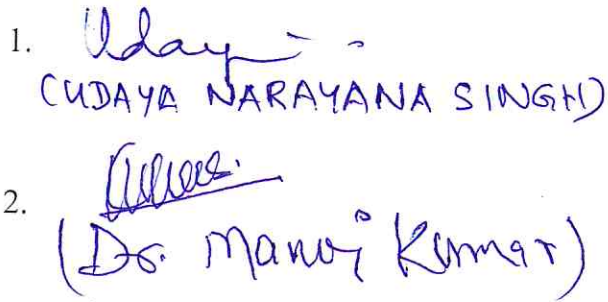 1. Uday
(UDAYA NARAYANA SINGH)
2.
(Dr. Manoj Kumar)